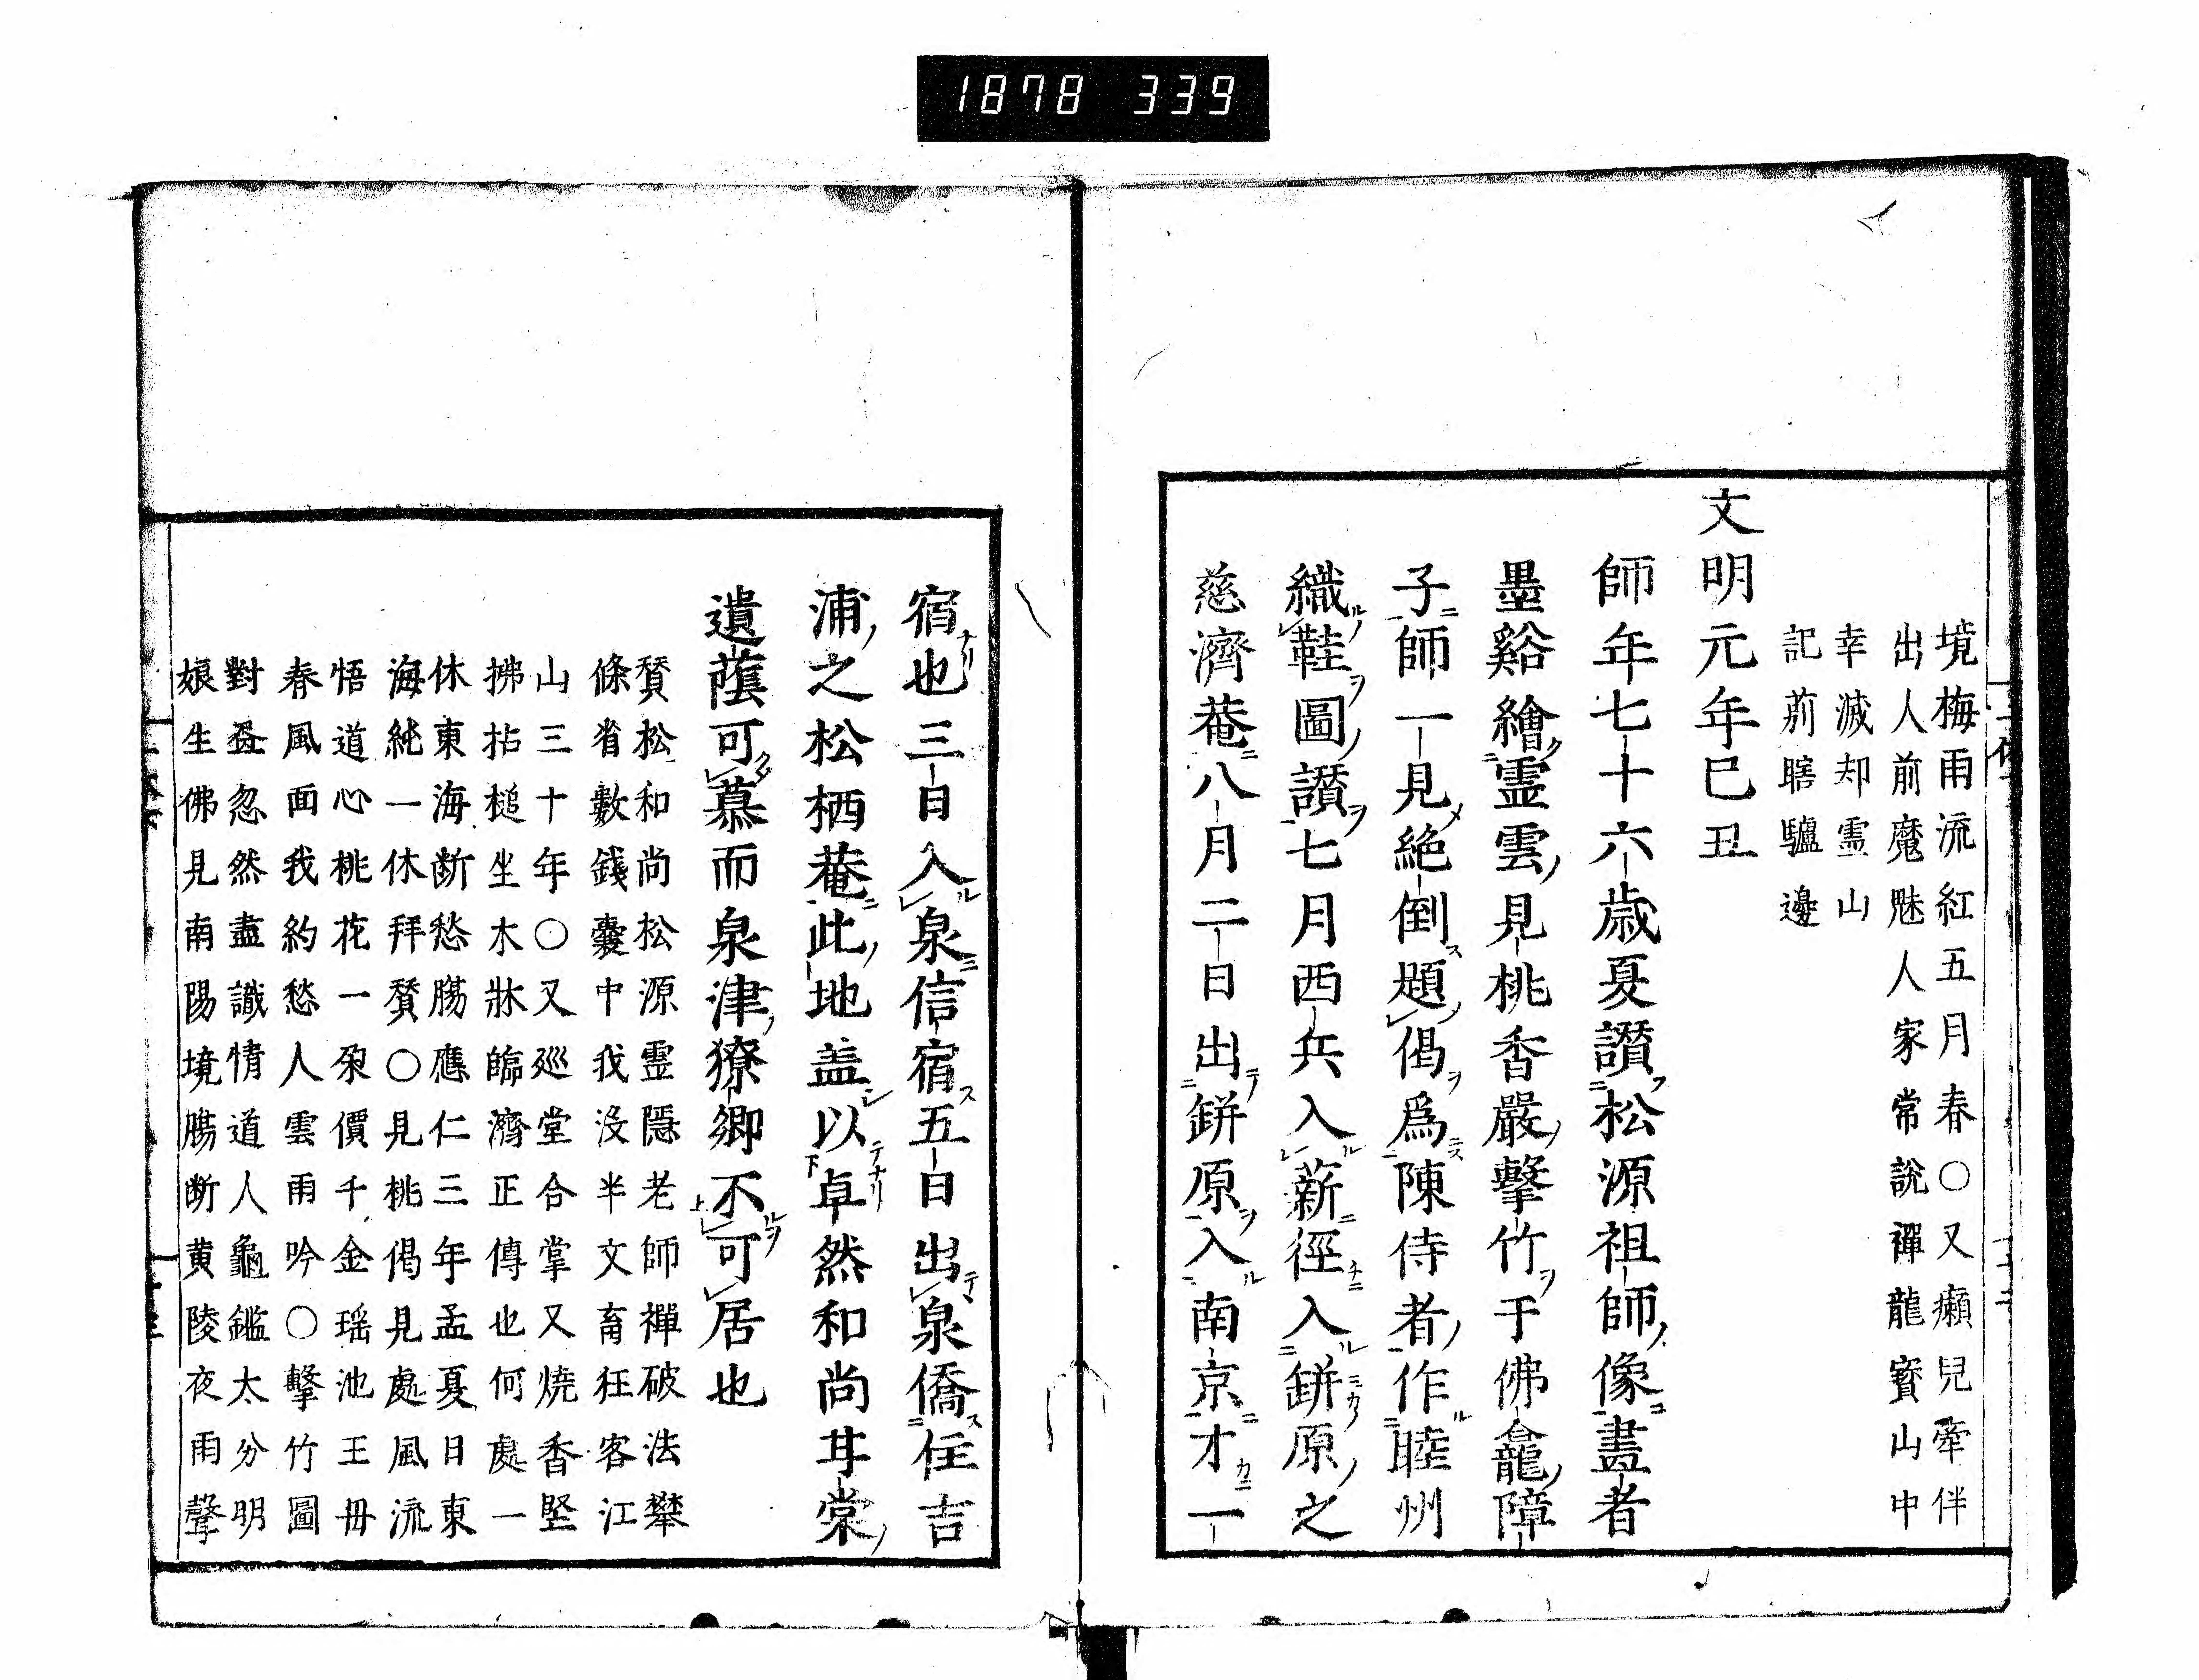 1878 339
境梅雨流紅五月春〇又癩兒牽伴
出人前魔魅人家常說禪龍寳山中
幸滅却霊山
記莂瞎驢邊
文明元年巳丑
師年七十六歳夏讃松源祖師像畫者
墨谿繪霊雲見桃香嚴擊竹于佛龕障
子師一見絶倒題偈爲陳侍者作睦州
織鞋圖讃七月西兵入薪徑入鉼原之
慈濟菴八月二日出鉼原入南京才一
宿也三日入泉信宿五日出泉僑住吉
浦之松栖菴此地盖以卓然和尚甘棠
遺蔭可慕而泉津獠卿不可居也
賛松和尚松源霊隱老師禪破法攀
條省數錢嚢中我没半文畜狂客江
山三十年〇又廵堂合掌又焼香堅
拂拈槌坐木牀臨濟正傳也何處一
休東海断愁膓應仁三年孟夏日東
海純一休拜賛〇見桃偈見處風流
悟道心桃花一朶價千金瑶池王毋
春風面我約愁人雲雨吟〇擊竹圖
對𣅜忽然盡識情道人龜鑑太分明
娘生佛見南陽境膓断黄陵夜雨聲